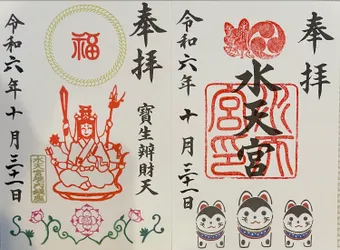 奉拝
福
寶生辨財天
令和六年十月三十一日
奉拝
水天宮
水天宮印
令和六年十月三十一日